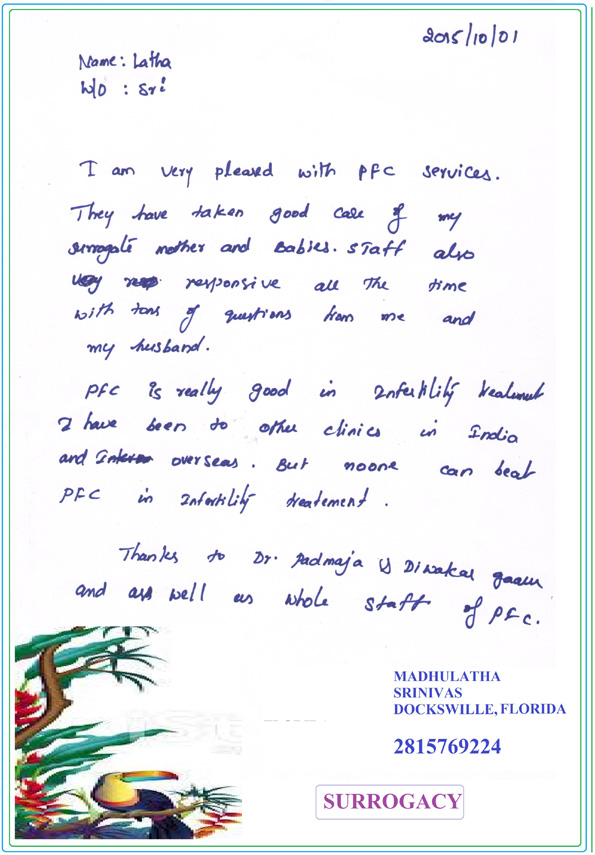 2015/10/01
Name: Latha
W/O : Sri
I am very pleased with PFC services.
They have taken good care of my
surrogate mother and Babies. Staff also
very responsive all The time
with tons of questions from me and
my husband.
PFC is really good in Infertility treatment
I have been to other clinics in India
and overseas. But noone can beat
PFC in Infertility treatement.
Thanks to Dr. Padmaja & Diwakar gaaru
and as well as whole staff of PFC.
MADHULATHA
SRINIVAS
DOCKSWILLE, FLORIDA
2815769224
SURROGACY